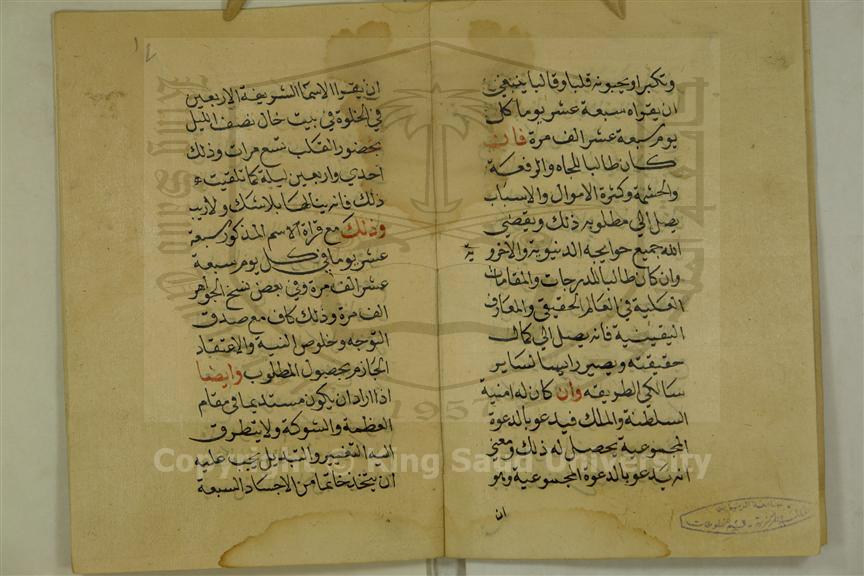 وتكبرا ويجبونه قلبا وقالبا ينبغي
ان يقراه سبعة عشر يوما كل
يوم سبعة عشر الف مرة فان
كان طالبا للجاه والرفعة
والحشمة وكثرة الاموال والاسباب
يصل الى مطلوبه ذلك ويقضى
الله جميع حوايجه الدنيوية والاخرو
ية
وان كان طالبا للدرجات والمقامات
العلية في العالم الحقيقي والمعارف
اليقينية فانه يصل الى كمال
حقيقته ويصير رايسا لساير
سالكي الطريقه وان كان له امنية
السلطنة والملك فيدعو بالدعوة
المجموعية يحصل له ذلك ومعنى
انه يدعو بالدعوة المجموعية وهو
ان
١٤
ان يقرا الاسما الشريفة الاربعين
في الخلوة في بيت خال نصف الليل
بحضور القلب تسع مرات وذلك
احدي واربعين ليلة كما تلقيت
ذلك فانه ينالها بلا شك ولا ريب
وذلك مع قراة الاسم المذكور سبعة
عشر يوما في كل يوم سبعة
عشر الف مرة وفي بعض نسخ الجواهر
الف مرة وذلك كاف مع صدق
التوجه وخلوص النية والاعتقاد
الجازم بحصول المطلوب وايضا
اذا اراد ان يكون مستديما في مقام
العظمة والشوكة ولا يتطرق
اليه التغيير والتبديل يجب عليه
ان يتخذ خاتما من الاجساد السبعة
1957
Copyright © King Saud University